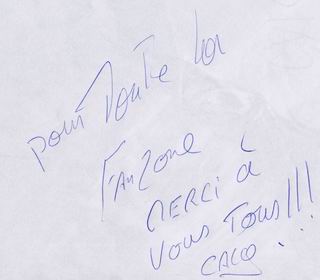 pour Toute la
Fanzone
MERCI à
VOUS TOUS!!!
CALO